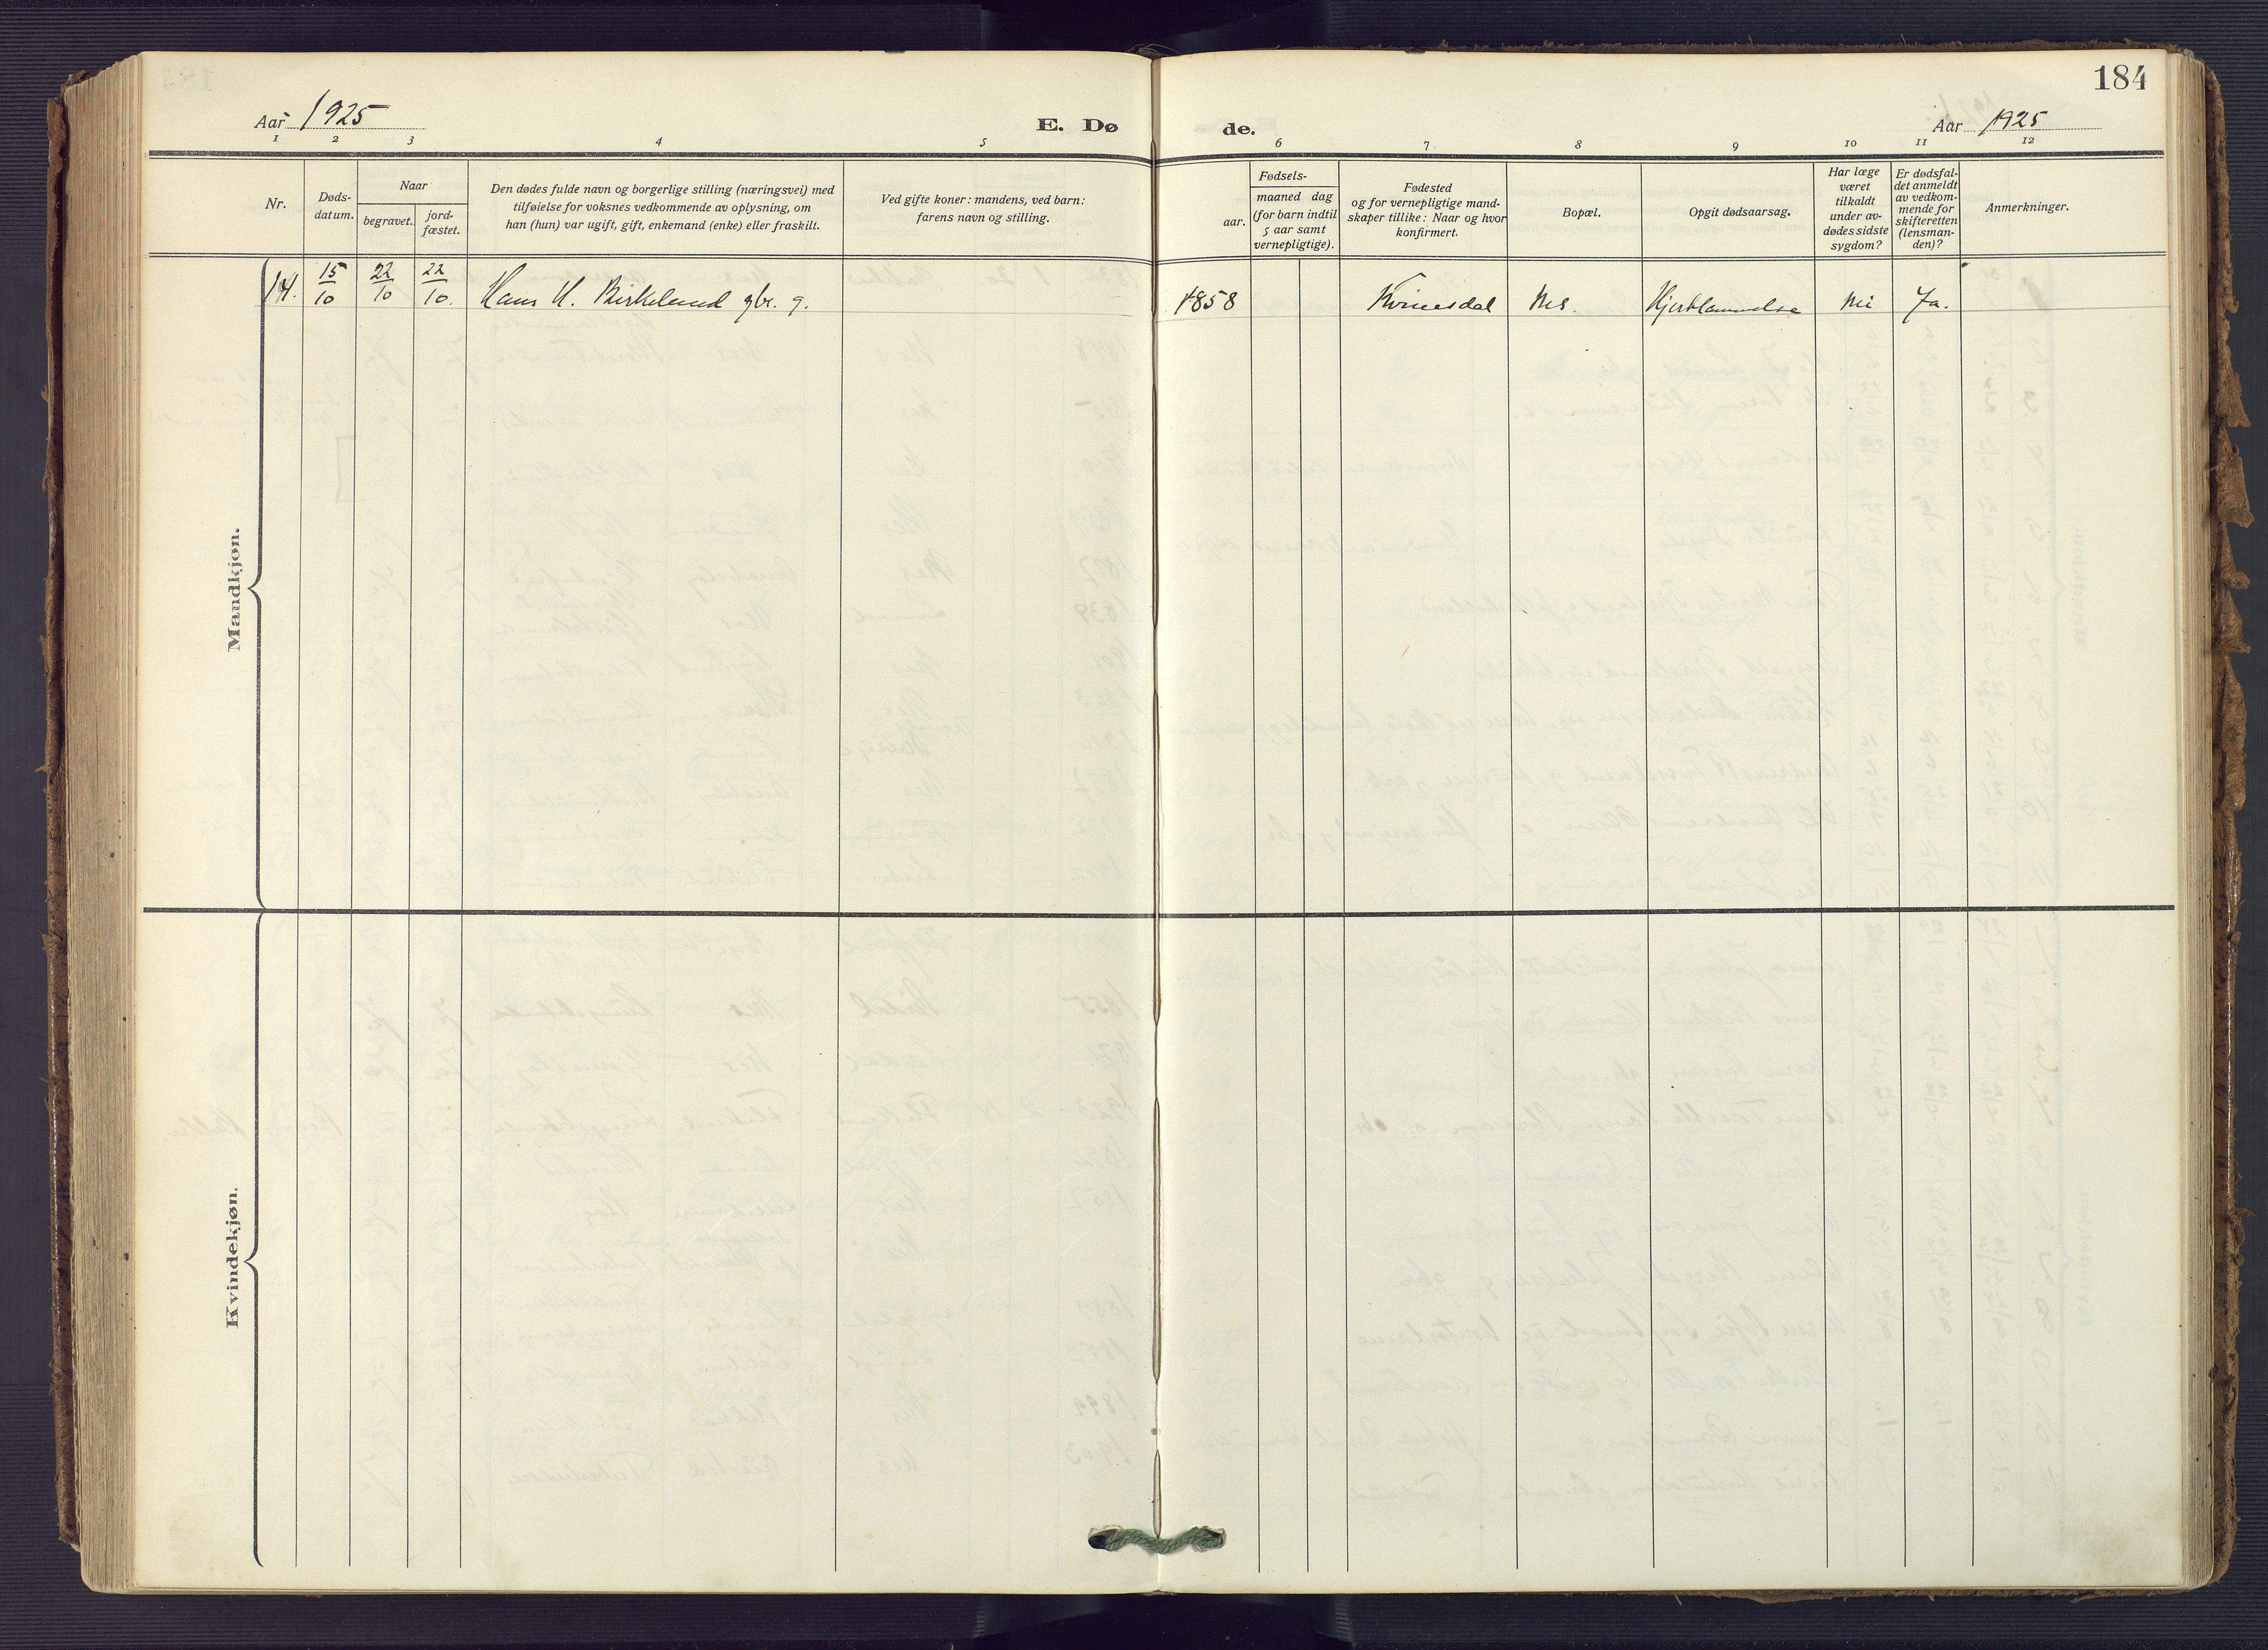 184
Aar 1925
E. Dø
de.
Aar 1925
1 2 3 4 5 6 7 8 9 10 11 12
Nr.
Døds-
datum.
Naar
begravet.
jord-
fæstet.
Den dødes fulde navn og borgerlige stilling (næringsvei) med
tilføielse for voksnes vedkommende av oplysning, om
han (hun) var ugift, gift, enkemand (enke) eller fraskilt.
Ved gifte koner: mandens, ved barn:
farens navn og stilling.
Fødsels-
aar.
maaned dag
(for barn indtil
5 aar samt
vernepligtige).
Fødested
og for vernepligtige mand-
skaper tillike: Naar og hvor
konfirmert.
Bopæl.
Opgit dødsaarsag.
Har læge
været
tilkaldt
under av-
dødes sidste
sygdom?
Er dødsfal-
det anmeldt
av vedkom-
mende for
skifteretten
(lensman-
den)?
Anmerkninger.
14. 15/10 22/10 22/10. Hans H. Birkeland gbr. g. 1858 Kvinesdal Nes. Hjertlammelse Nei Ja.
Mandkjøn.
Kvindekjøn.